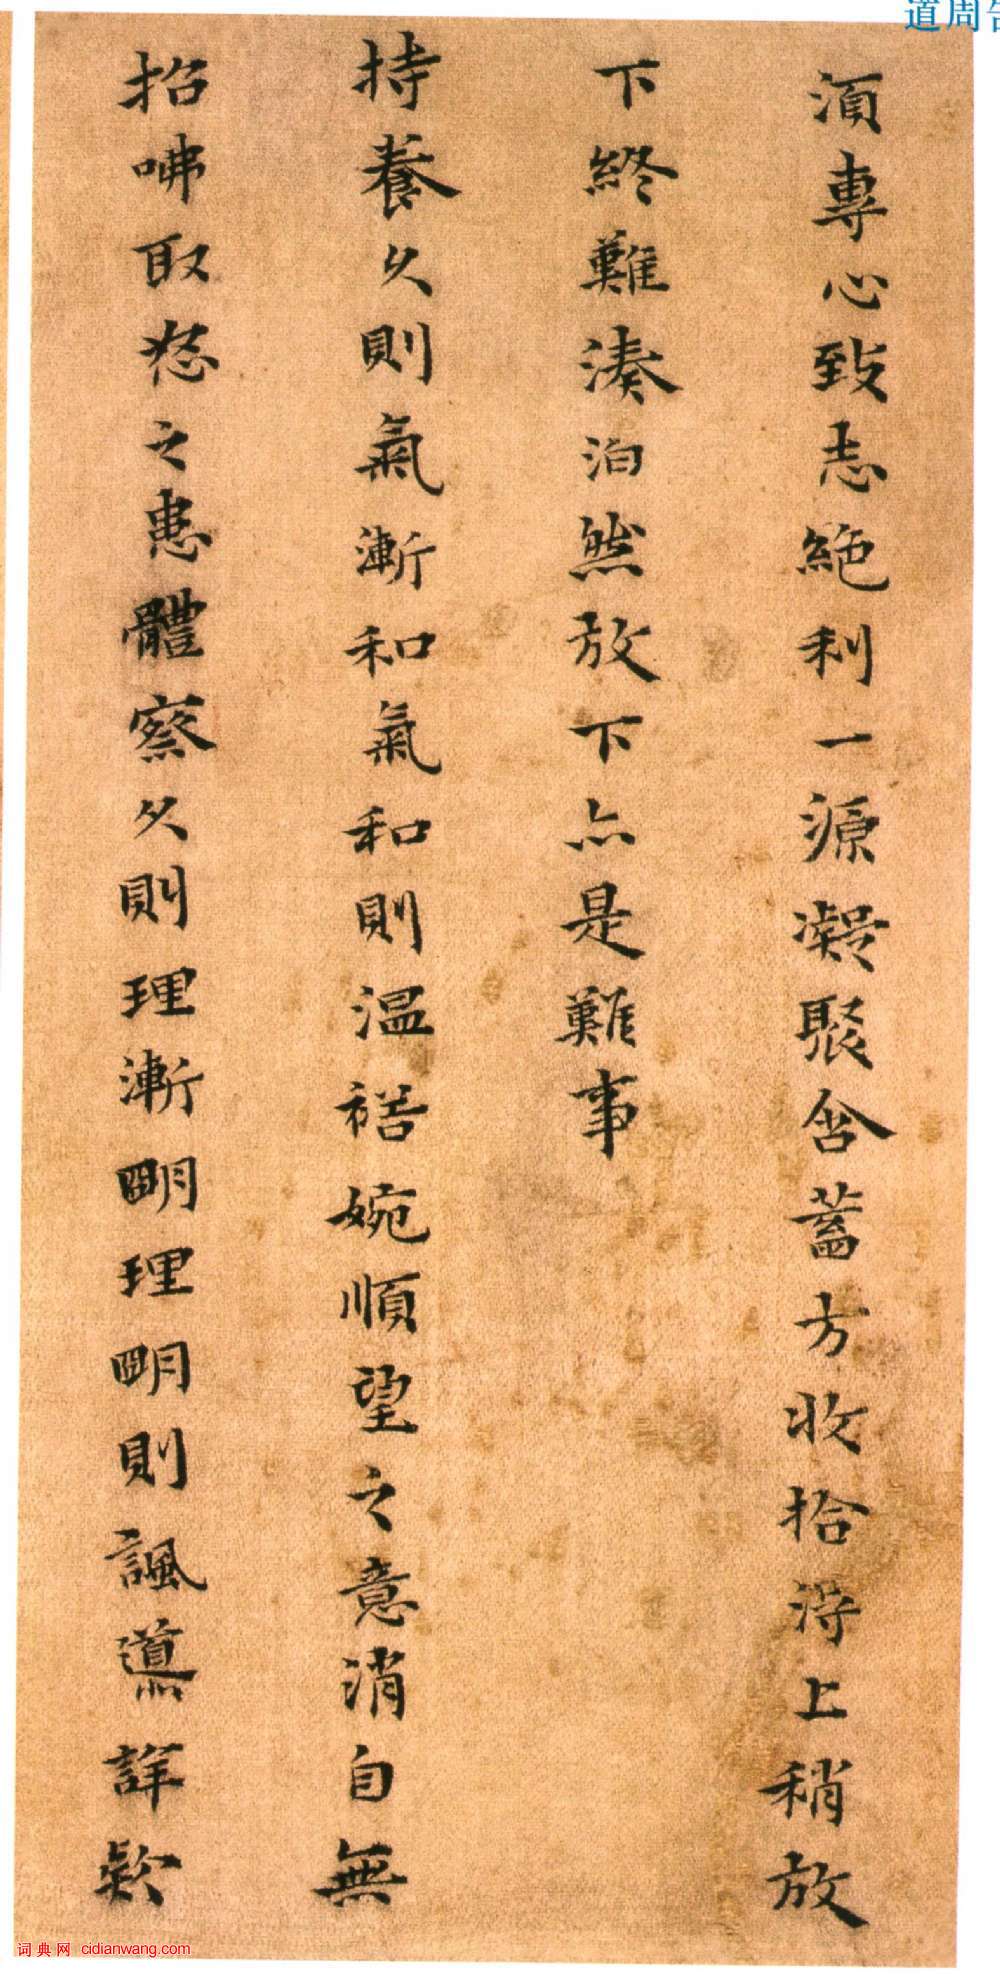 道周告
須專心致志絕利一源凝聚含蓄方收拾得上稍放
下終難湊泊然放下亦是難事
持養久則氣漸和氣和則溫裕婉順望之意消自無
招咈取怒之患體察久則理漸明理明則諷導詳款
词典网 cidianwang.com